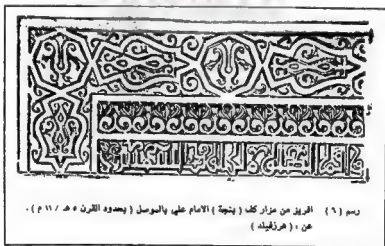 رسم (٦) افريز من مزار كف (بنجة) الامام علي بالموصل (بحدود القرن ٥ هـ / ١١ م) .
عن : (هرزفيلد)